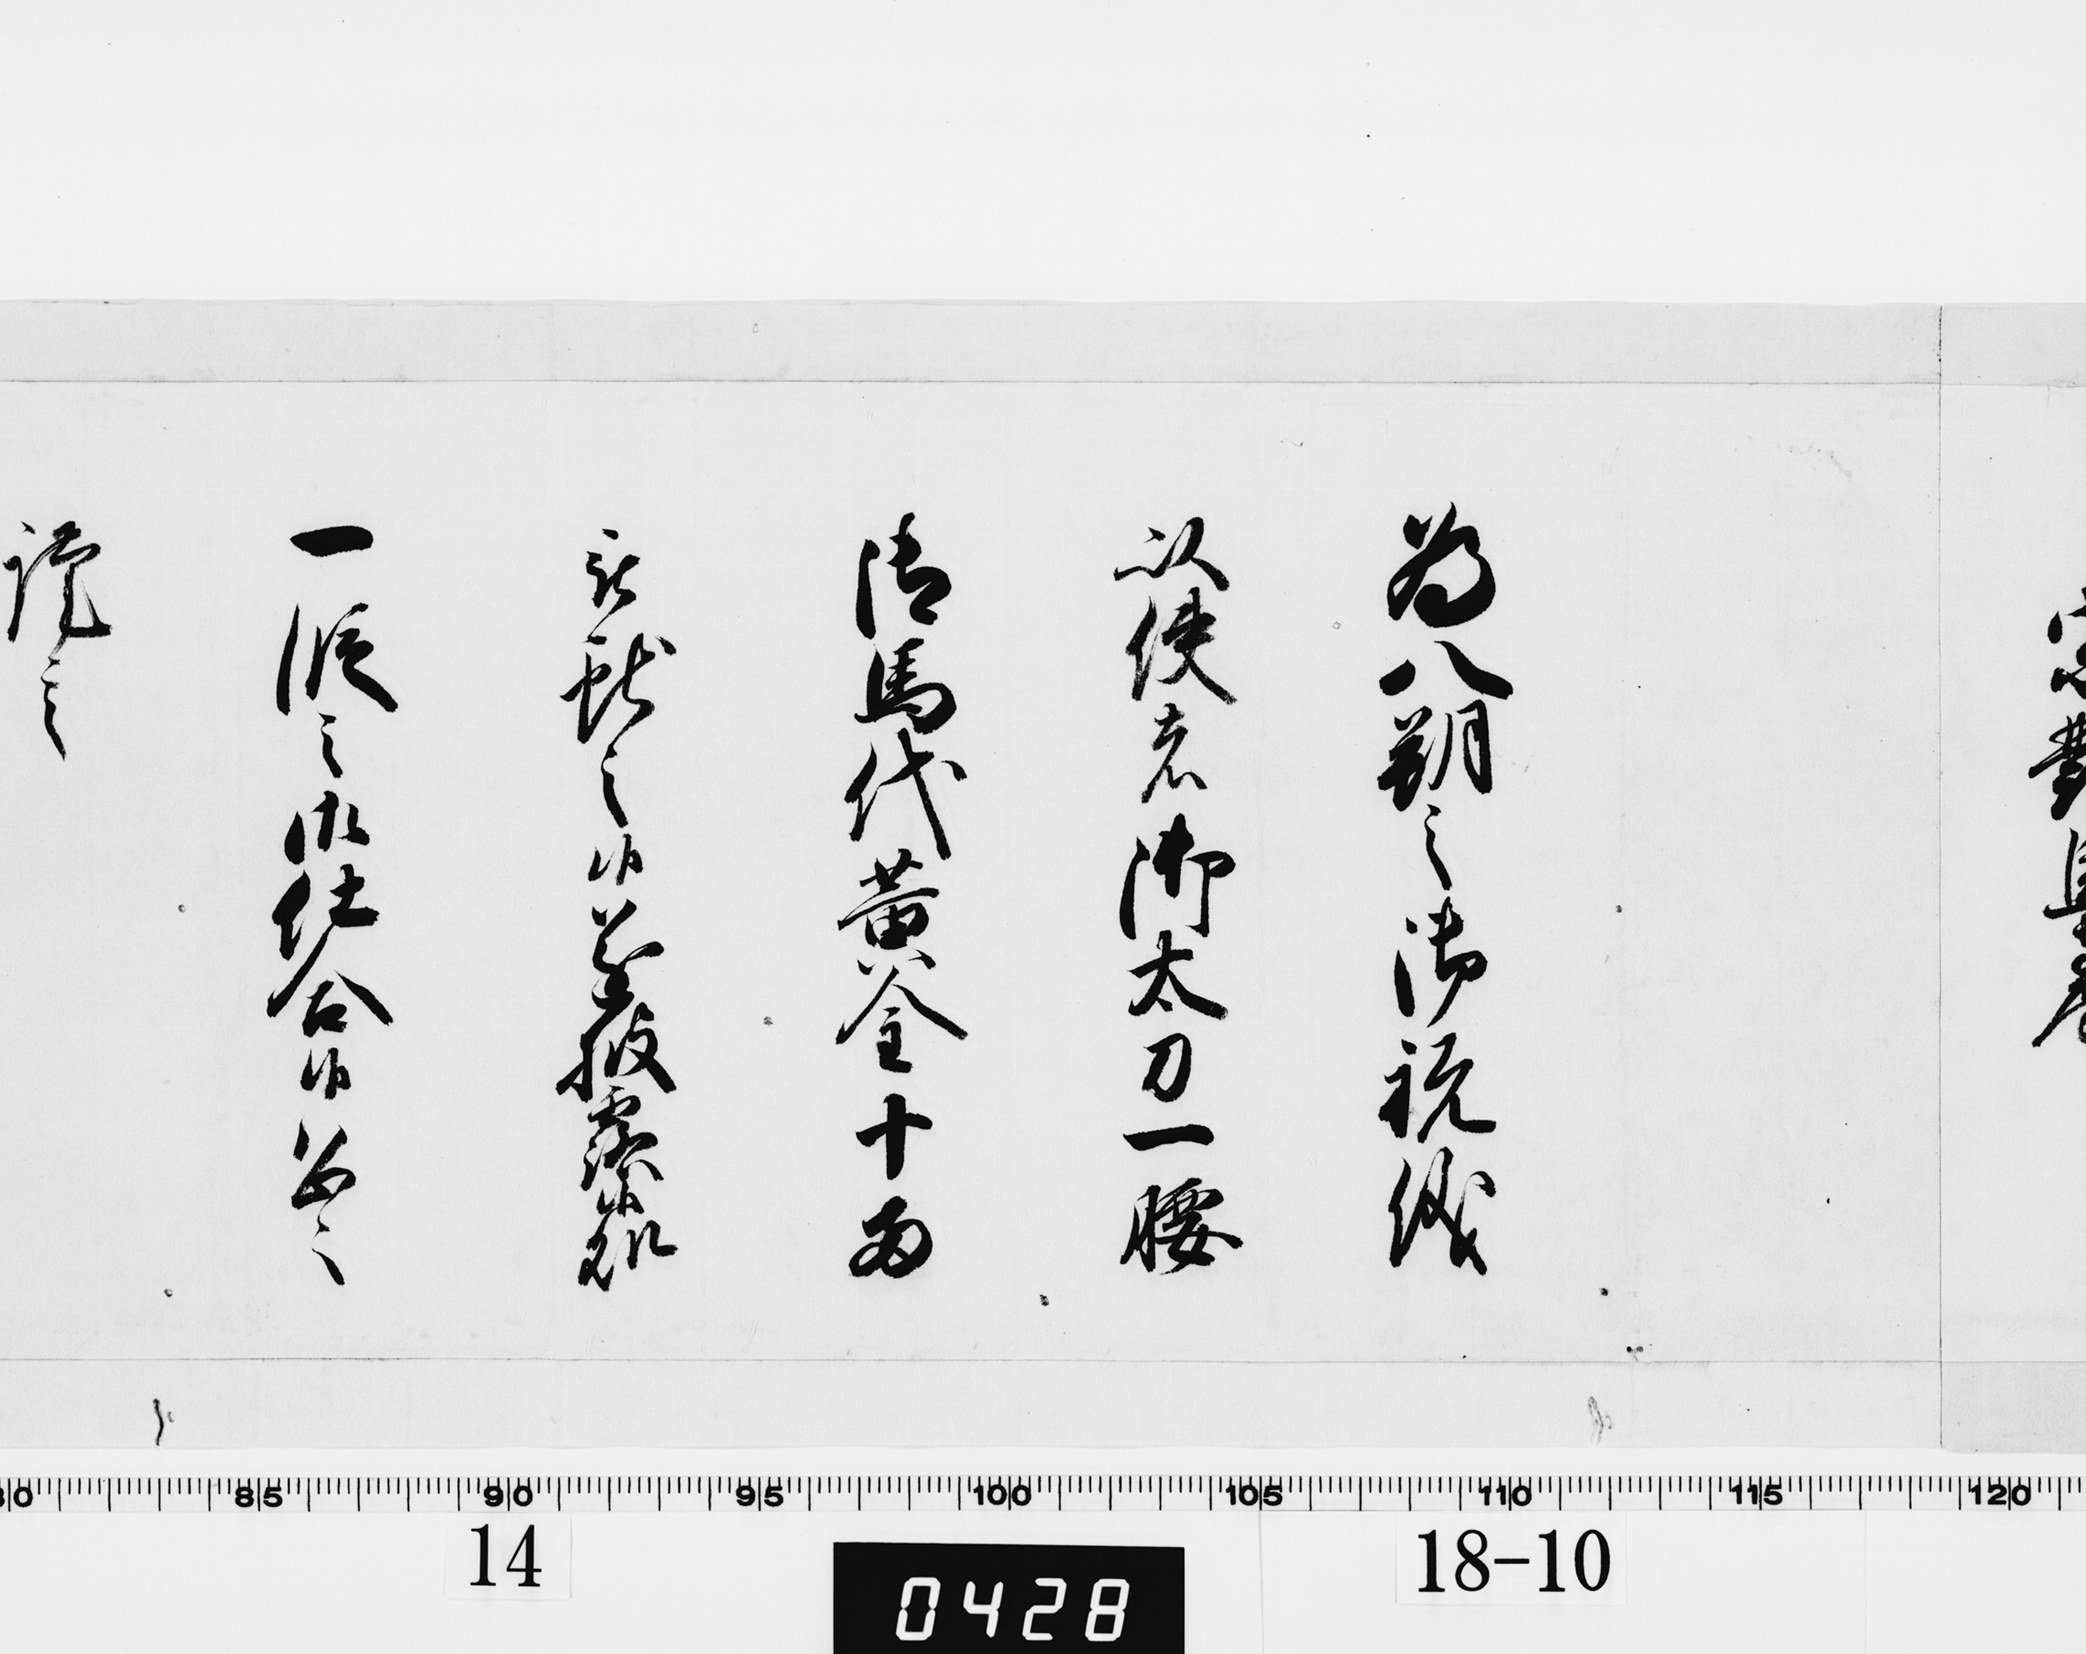 為八朔之御祝儀
以使者御太刀一腰
御馬代黄金十両
被献之候遂披露候処
一段之御仕合候恐々
謹言
85 90 95 100 105 110 115 120
14
0428
18-10